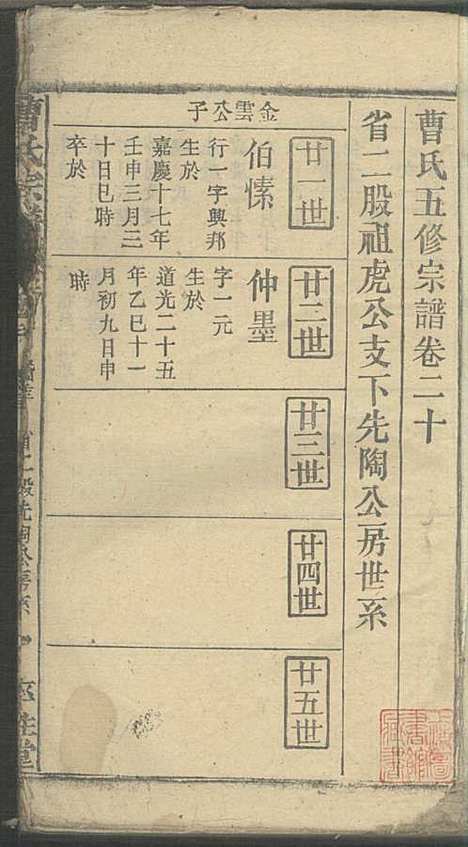 曹氏五修宗譜卷二十
省二股祖虎公支下先陶公房世系
廿一世
金雲公子
伯愫
行一字興邦
生於
嘉慶十七年
壬申三月三
十日巳時
卒於
廿二世
仲墨
字一元
生於
道光二十五
年乙巳十一
月初九日申
時
廿三世
廿四世
廿五世
曹氏宗譜